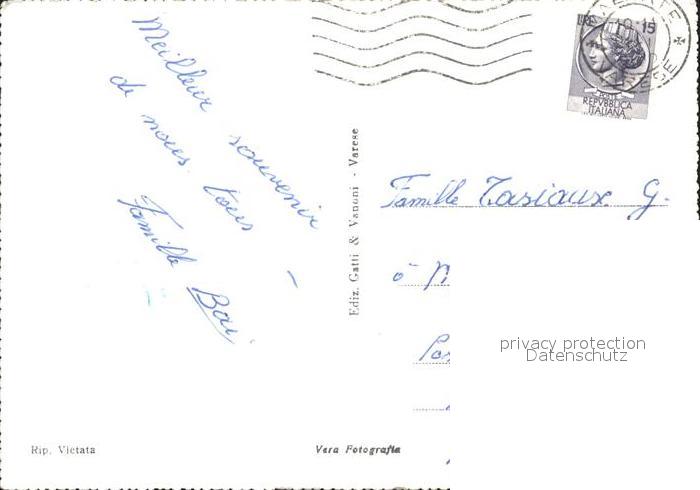 Meilleur souvenir
de nous tous -
Famille Boi.
Ediz. Gatti & Vanoni - Varese
Rip. Vietata
Vera Fotografia
LIRE 15
POSTE
REPVBBLICA
ITALIANA
Famille Tasiaux G.
privacy protection
Datenschutz